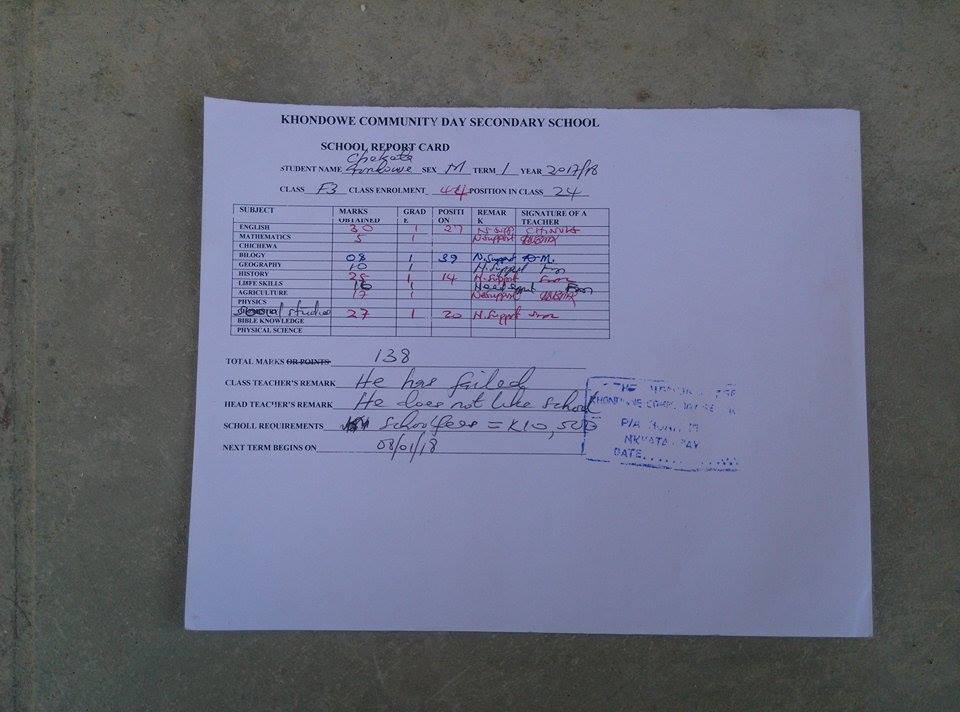 KHONDOWE COMMUNITY DAY SECONDARY SCHOOL
SCHOOL REPORT CARD
STUDENT NAME SEX M TERM 1 YEAR 2017/18
CLASS F3 CLASS ENROLMENT 44 POSITION IN CLASS 24
SUBJECT MARKS OBTAINED GRADE POSITION REMARK SIGNATURE OF A TEACHER
ENGLISH 30 1 27
MATHEMATICS 5 1 N support
CHICHEWA
BILOGY 08 1 39 N. Support
GEOGRAPHY 10 1 N. Support
HISTORY 28 1 14 N. Support
LIFFE SKILLS 10 1 Need support
AGRICULTURE 17 1 N support
PHYSICS
Social studies 27 1 20 N. Support
BIBLE KNOWLEDGE
PHYSICAL SCIENCE
TOTAL MARKS OR POINTS 138
CLASS TEACHER'S REMARK He has failed
HEAD TEACHER'S REMARK He does not like school
SCHOLL REQUIREMENTS School fees = K10,500
NEXT TERM BEGINS ON 08/01/18
KHONDOWE
NKHATA BAY
DATE